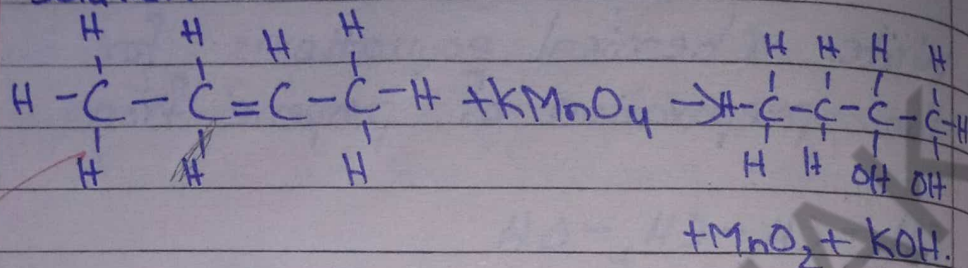 H H H H H H H H
H - C - C = C - C - H + KMnO4 → H - C - C - C - C - H
H H H H H OH OH
+ MnO2 + KOH.